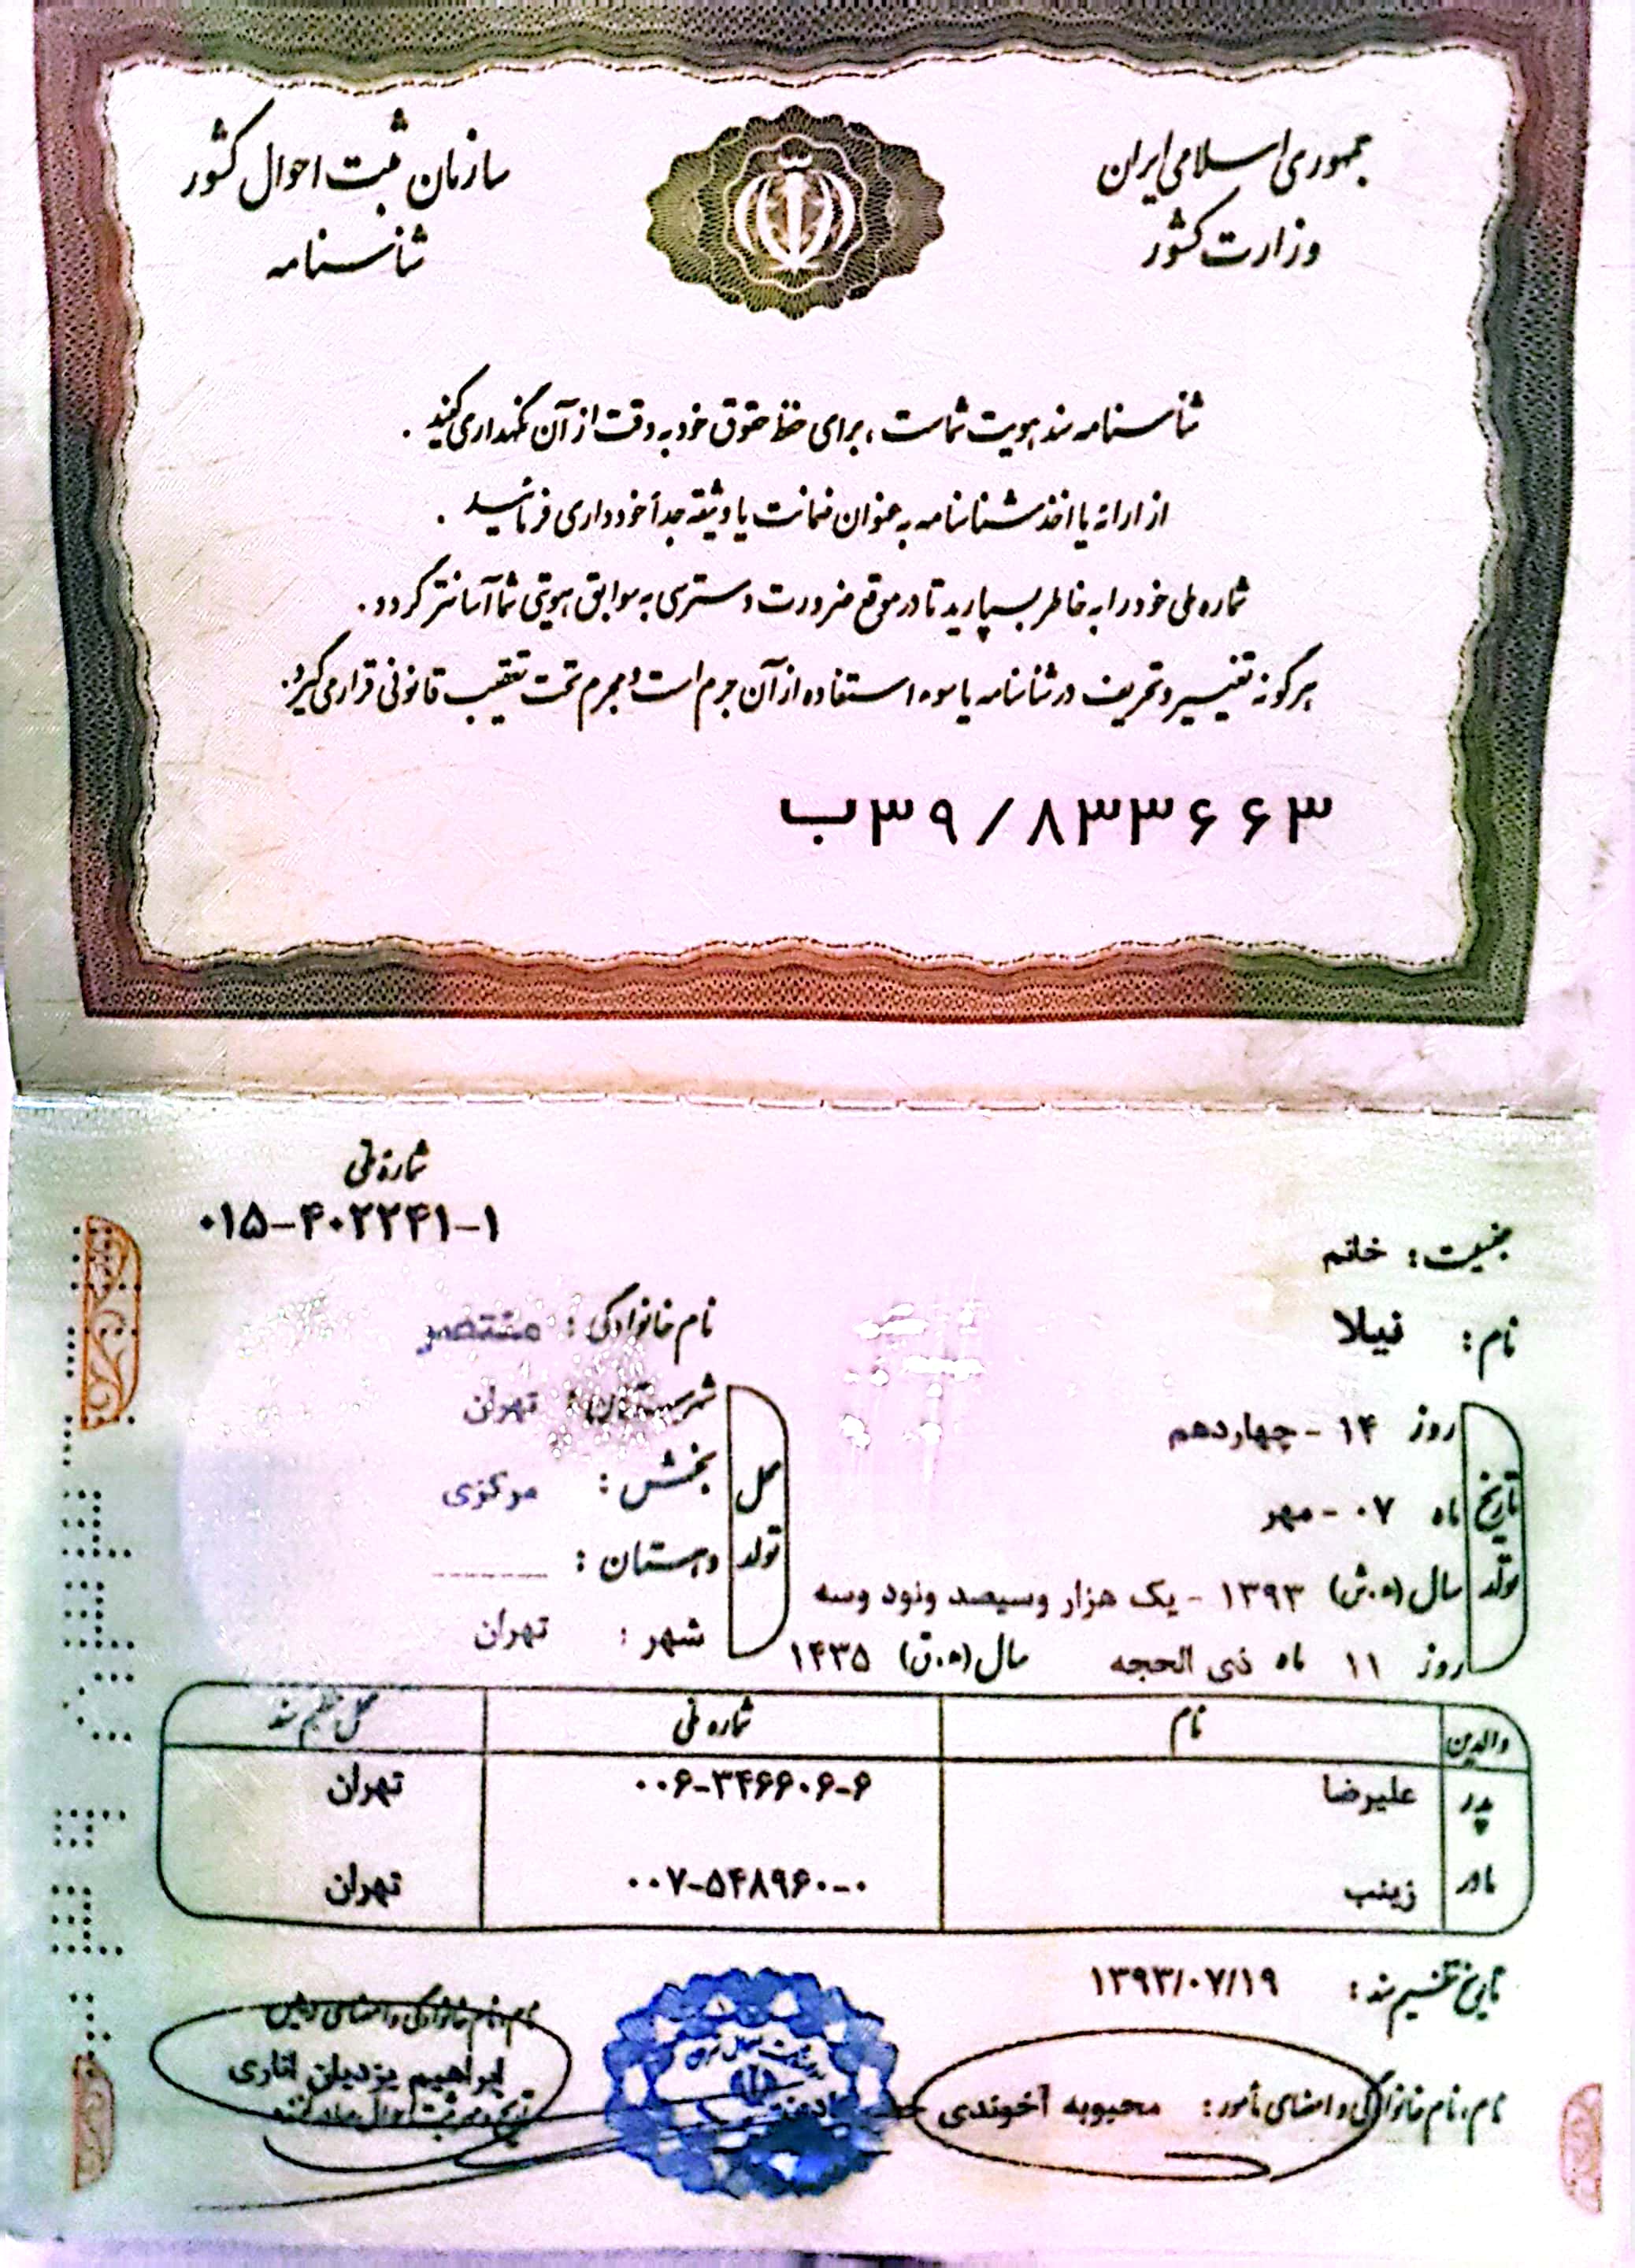 جمهوری اسلامی ایران
وزارت کشور
سازمان ثبت احوال کشور
شناسنامه
شناسنامه سند هویت شماست ، برای حفظ حقوق خود به دقت از آن نگهداری کنید .
از ارائه یا اخذ شناسنامه به عنوان ضمانت یا وثیقه جداً خودداری فرمائید .
شماره ملی خود را به خاطر بسپارید تا در موقع ضرورت دسترسی به سوابق هویتی شما آسانتر گردد .
هرگونه تغییر و تحریف در شناسنامه یا سوء استفاده از آن جرم است و مجرم تحت تعقیب قانونی قرار می گیرد .
ب۳۹/۸۳۳۶۶۳
شماره ملی
۰۱۵-۴۰۲۲۴۱-۱
جنسیت : خانم
نام : نیلا
نام خانوادگی : منتصر
تاریخ تولد
روز ۱۴ - چهاردهم
ماه ۰۷ - مهر
سال (ه.ش) ۱۳۹۳ - یک هزار وسیصد ونود وسه
روز ۱۱ ماه ذی الحجه سال (ه.ق) ۱۴۳۵
محل تولد
شهرستان : تهران
بخش : مرکزی
دهستان : --------
شهر : تهران
والدین نام شماره ملی محل تنظیم سند
پدر علیرضا ۰۰۶-۳۴۶۶۰۶-۶ تهران
مادر زینب ۰۰۷-۵۴۸۹۶۰-۰ تهران
تاریخ تنظیم سند : ۱۳۹۳/۰۷/۱۹
نام، نام خانوادگی و امضای مأمور : محبوبه آخوندی
نام، نام خانوادگی و امضای رئیس
ابراهیم یزدیان اناری